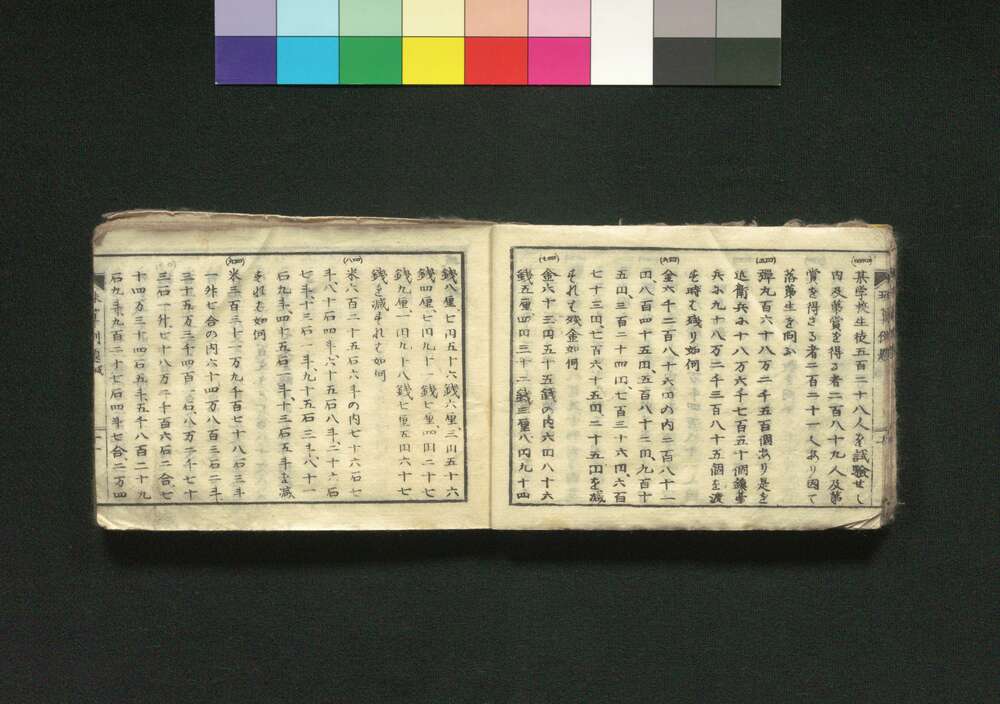 某学校生徒五百二十八人を試験せし
内及第賞を得る者二百八十九人及第
賞を得さる者二百二十一人あり因て
落第生を問ふ
弾丸百六十八万二千五百個あり是を
近衛兵に十八万六千七百五十個鎮台
兵に九十八万二千三百八十五個を渡
す時も残り如何
金六千二百八十六円の内二百八十一
円八百四十五円、五百八十二円、九百十
五円、三百二十四円、七百三十六円、六百
七十三円、七百六十五円、二十五円を減
すれも残金如何
金六十三円五十五銭の内六円八十六
銭五厘、四円三十二銭三厘八円九十四
銭八厘、七円五十六銭六厘三円五十六
銭四厘七円九十一銭七厘、四円二十七
銭九厘、一円九十八銭七厘五円六十七
銭を減すれも如何
米六百三十五石六斗の内七十六石七
斗八十石四斗、六十五石八斗、二十六石
七斗、十三石一斗、九十五石三斗、八十一
石九斗四十五石二斗、十三石五斗を減
すれも如何
米三百三十二万九千百七十八石三斗
一升七合の内六十四万八百三石二斗
三十五万三千四百
三石一升、七十八万二千百六石二合、七
十四万三千四石五斗五千八百二十九
石九斗、九百二十七石四斗七合、二万四